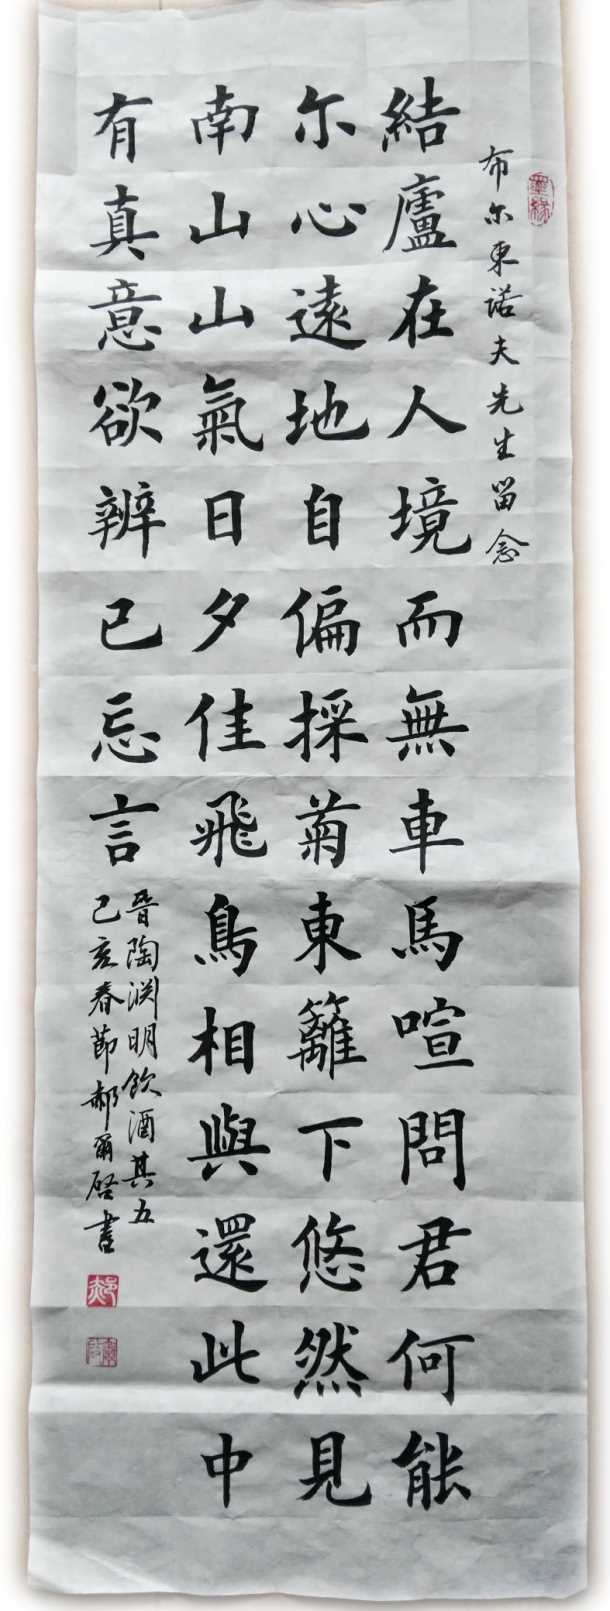 布尔東诺夫先生留念
結廬在人境而無車馬喧問君何能
尓心遠地自偏採菊東籬下悠然見
南山山氣日夕佳飛鳥相與還此中
有真意欲辨已忘言
晉陶渊明飲酒其五
己亥春節郝爾啓書